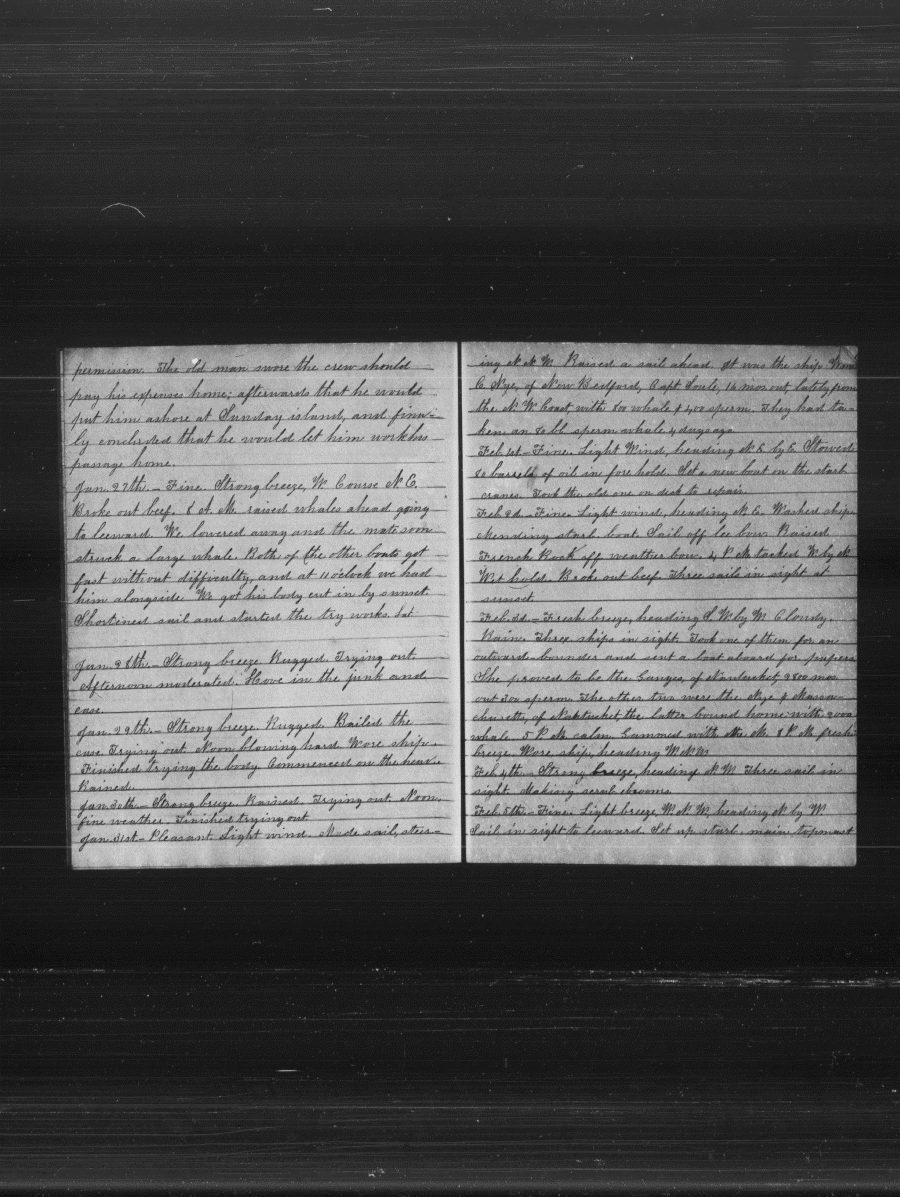 permission. The old man swore the crew should
pay his expenses home; afterwards that he would
put him ashore at Sunday island, and fina-
ly concluded that he would let him work his
passage home.
Jan. 27th. - Fine. Strong breeze, W. Course N. E.
Broke out beef. 8 A. M. raised whales ahead going
to leeward. We lowered away and the mate soon
struck a large whale. Both of the other boats got
fast without difficulty, and at 11 o'clock we had
him alongside. We got his body cut in by sunset.
Shortened sail and started the try works. Lat
Jan. 28th. - Strong breeze. Rugged. Trying out.
Afternoon moderated. Hove in the junk and
case.
Jan. 29th. - Strong breeze. Rugged. Bailed the
case. Trying out. Noon blowing hard. Wore ship.
Finished trying the body. Commenced on the head.
Rained.
Jan. 30th. - Strong breeze. Rained. Trying out. Noon,
fine weather. Finished trying out
Jan. 31st. - Pleasant. Light wind. Made sail, steer-
ing N. N. W. Raised a sail ahead. It was the ship Wm
C. Nye, of New Bedford, Capt Soule, 16 mos out, lately from
the N. W. Coast, with 800 whale & 400 sperm. They had ta-
ken an 80 bbl sperm whale 4 days ago
Feb. 1st - Fine. Light Wind, heading N. E. by E. Stowed
80 barrels of oil in fore hold. Set a new boat on the starb
cranes. Took the old one on deck to repair.
Feb. 2d. - Fine. Light wind, heading N. E. Washed ship.
Mending starb. boat. Sail off lee bow. Raised
French Rock off weather bow. 4 P. M. tacked W. by N.
Wet hold. Broke out beef. Three sails in sight at
sunset
Feb. 3d. - Fresh breeze, heading S. W. by W. Cloudy.
Rain. Three ships in sight. Took one of them for an
outward-bounder and sent a boat aboard for papers
She proved to be the Ganges, of Nantucket, 28 mos
out 300 sperm. The other two were the Nye & Massa-
chusetts, of Nantucket, the latter bound home with 2000
whale. 5 P. M. calm. Gammed with the M. 8 P. M. fresh
breeze. Wore ship, heading W.N.W.
Feb. 4th. - Strong breeze, heading N. W. Three sail in
sight. Making scrub brooms.
Feb. 5th. - Fine. Light breeze, W. N. W. heading N. by W.
Sail in sight to leeward. Set up starb. main topmast